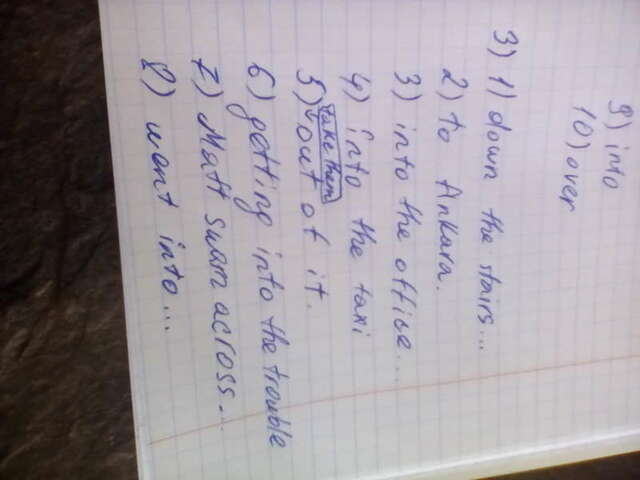 9) into
10) over
3) 1) down the stairs...
2) to Ankara.
3) into the office...
4) into the taxi
take them
5) out of it.
6) getting into the trouble
7) Matt swam across...
8) went into...